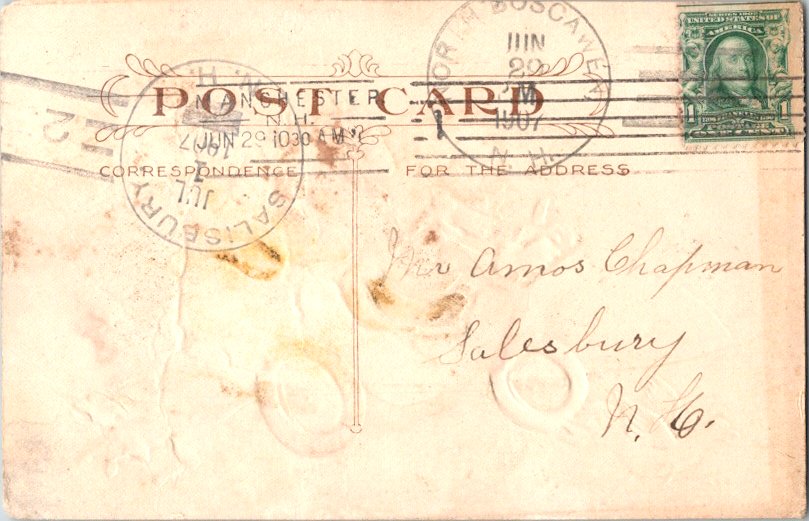 NORTH BOSCAWEN
JUN
29
M
1907
N.H.
SERIES 1902
UNITED STATES OF
AMERICA
1 1
MANCHESTER
N.H.
JUN 29 1030 AM
2
POST CARD
CORRESPONDENCE FOR THE ADDRESS
SALISBURY
N.H.
JUL
1
1907
Mr Amos Chapman
Salesbury
N. H.